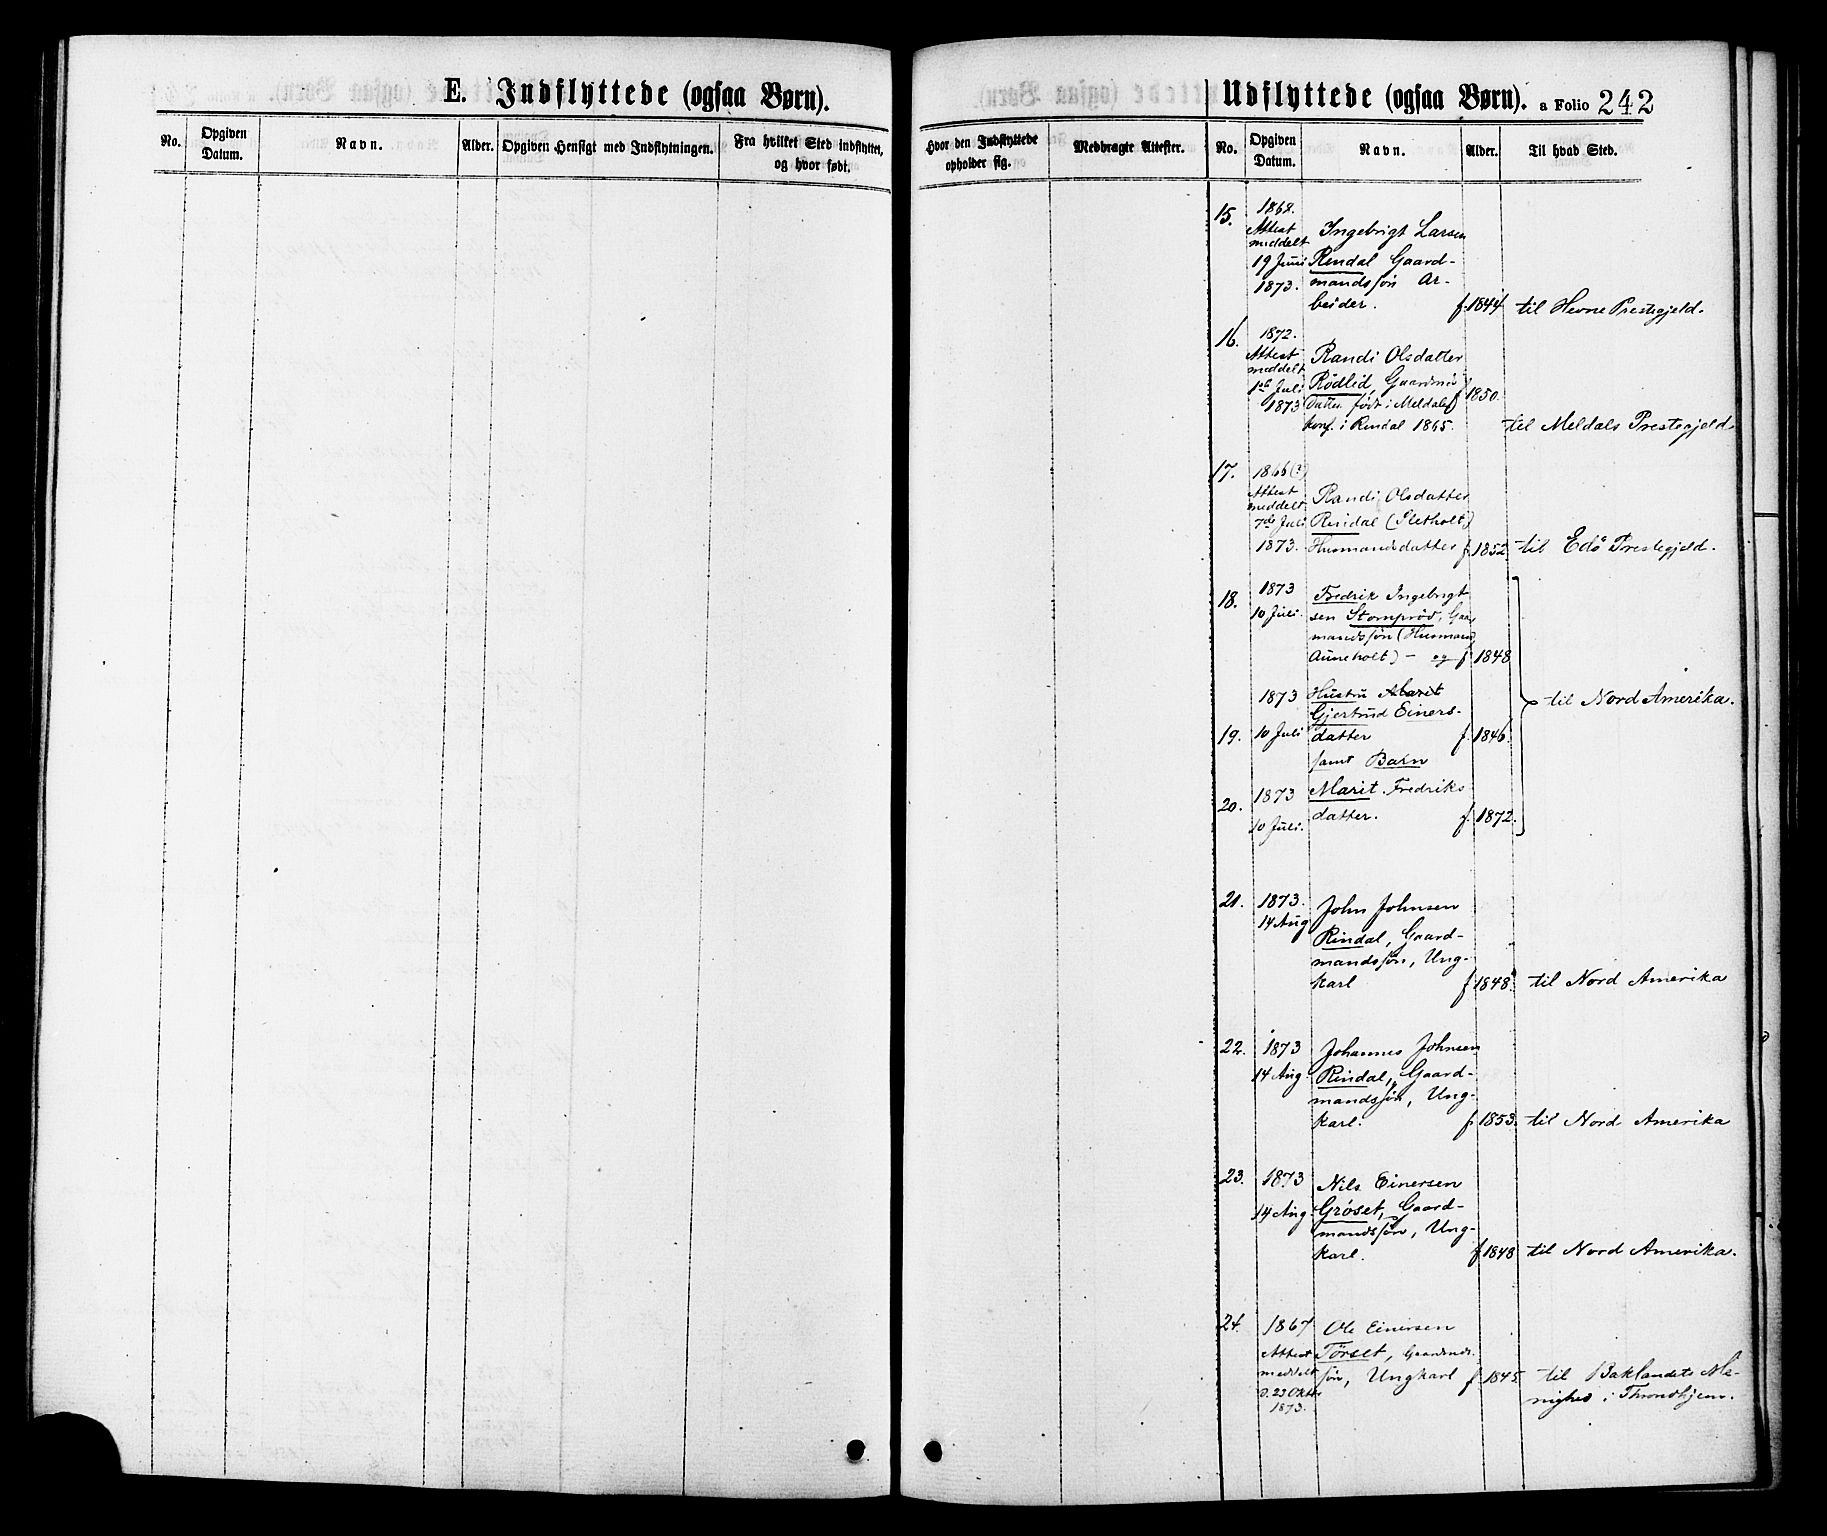 E. Indflyttede (ogsaa Børn).
No.
Opgiven
Datum.
Navn.
Alder.
Opgiven Hensigt med Indflytningen.
Fra hvilket Sted indflyttet,
og hvor født.
Udflyttede (ogsaa Børn). a Folio 242
Hvor den Indflyttede
opholder sig.
Medbragte Attester.
No.
Opgiven
Datum.
Navn.
Alder.
Til hvad Sted.
15.
1868.
Attest
meddelt
19 Juni
1873.
Ingebrigt Larsen
Rendal Gaard-
mandssøn Ar-
beider.
f. 1844
til Hevne Prestegjeld.
16.
1872.
Attest
meddelt
1ste Juli
1873
Randi Olsdatter
Rödlid, Gaardmd
datter født i Meldalen
konf. i Rindal 1865.
f 1850.
til Meldals Prestegjeld.
17.
1866(?)
Attest
meddelt
7de Juli
1873.
Randi Olsdatter
Rindal (Sletholt)
Husmandsdatter
f. 1852.
til Edö Prestegjeld.
18.
1873
10 Juli.
Fredrik Ingebrigt
sen Stomprød, Gaa
mandssøn (Husmand
Auneholt) – og
f 1848
1873
19. 10 Juli
Hustru Marit
Gjertrud Einers-
datter
f. 1846.
samt Barn
20.
1873
10 Juli.
Marit Fredriks
datter.
f. 1872.
til Nord Amerika.
21.
1873.
14 Aug
John Johnsen
Rindal, Gaard-
mandssøn, Ung-
karl
f 1848.
til Nord Amerika
22.
1873
14 Aug
Johannes Johnsen
Rindal, Gaard-
mandssøn, Ung-
karl.
f. 1853.
til Nord Amerika
23.
1873
14 Aug
Nils Einersen
Gröset, Gaard-
mandssøn, Ung-
karl.
f 1848
til Nord Amerika.
24.
1867
Attest
meddelt
d. 23 Oktbr
1873.
Ole Einersen
Törset, Gaardmds.
søn, Ungkarl
f. 1845.
til Baklandets Me-
nighed i Throndhjem.